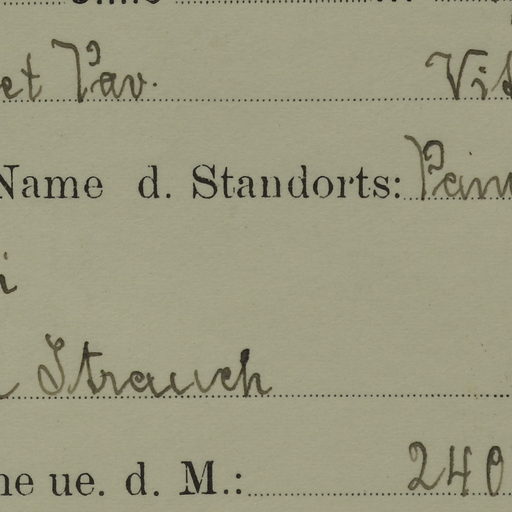 et Pav.
Name d. Standorts:
i
Strauch
he ue. d. M.: 240